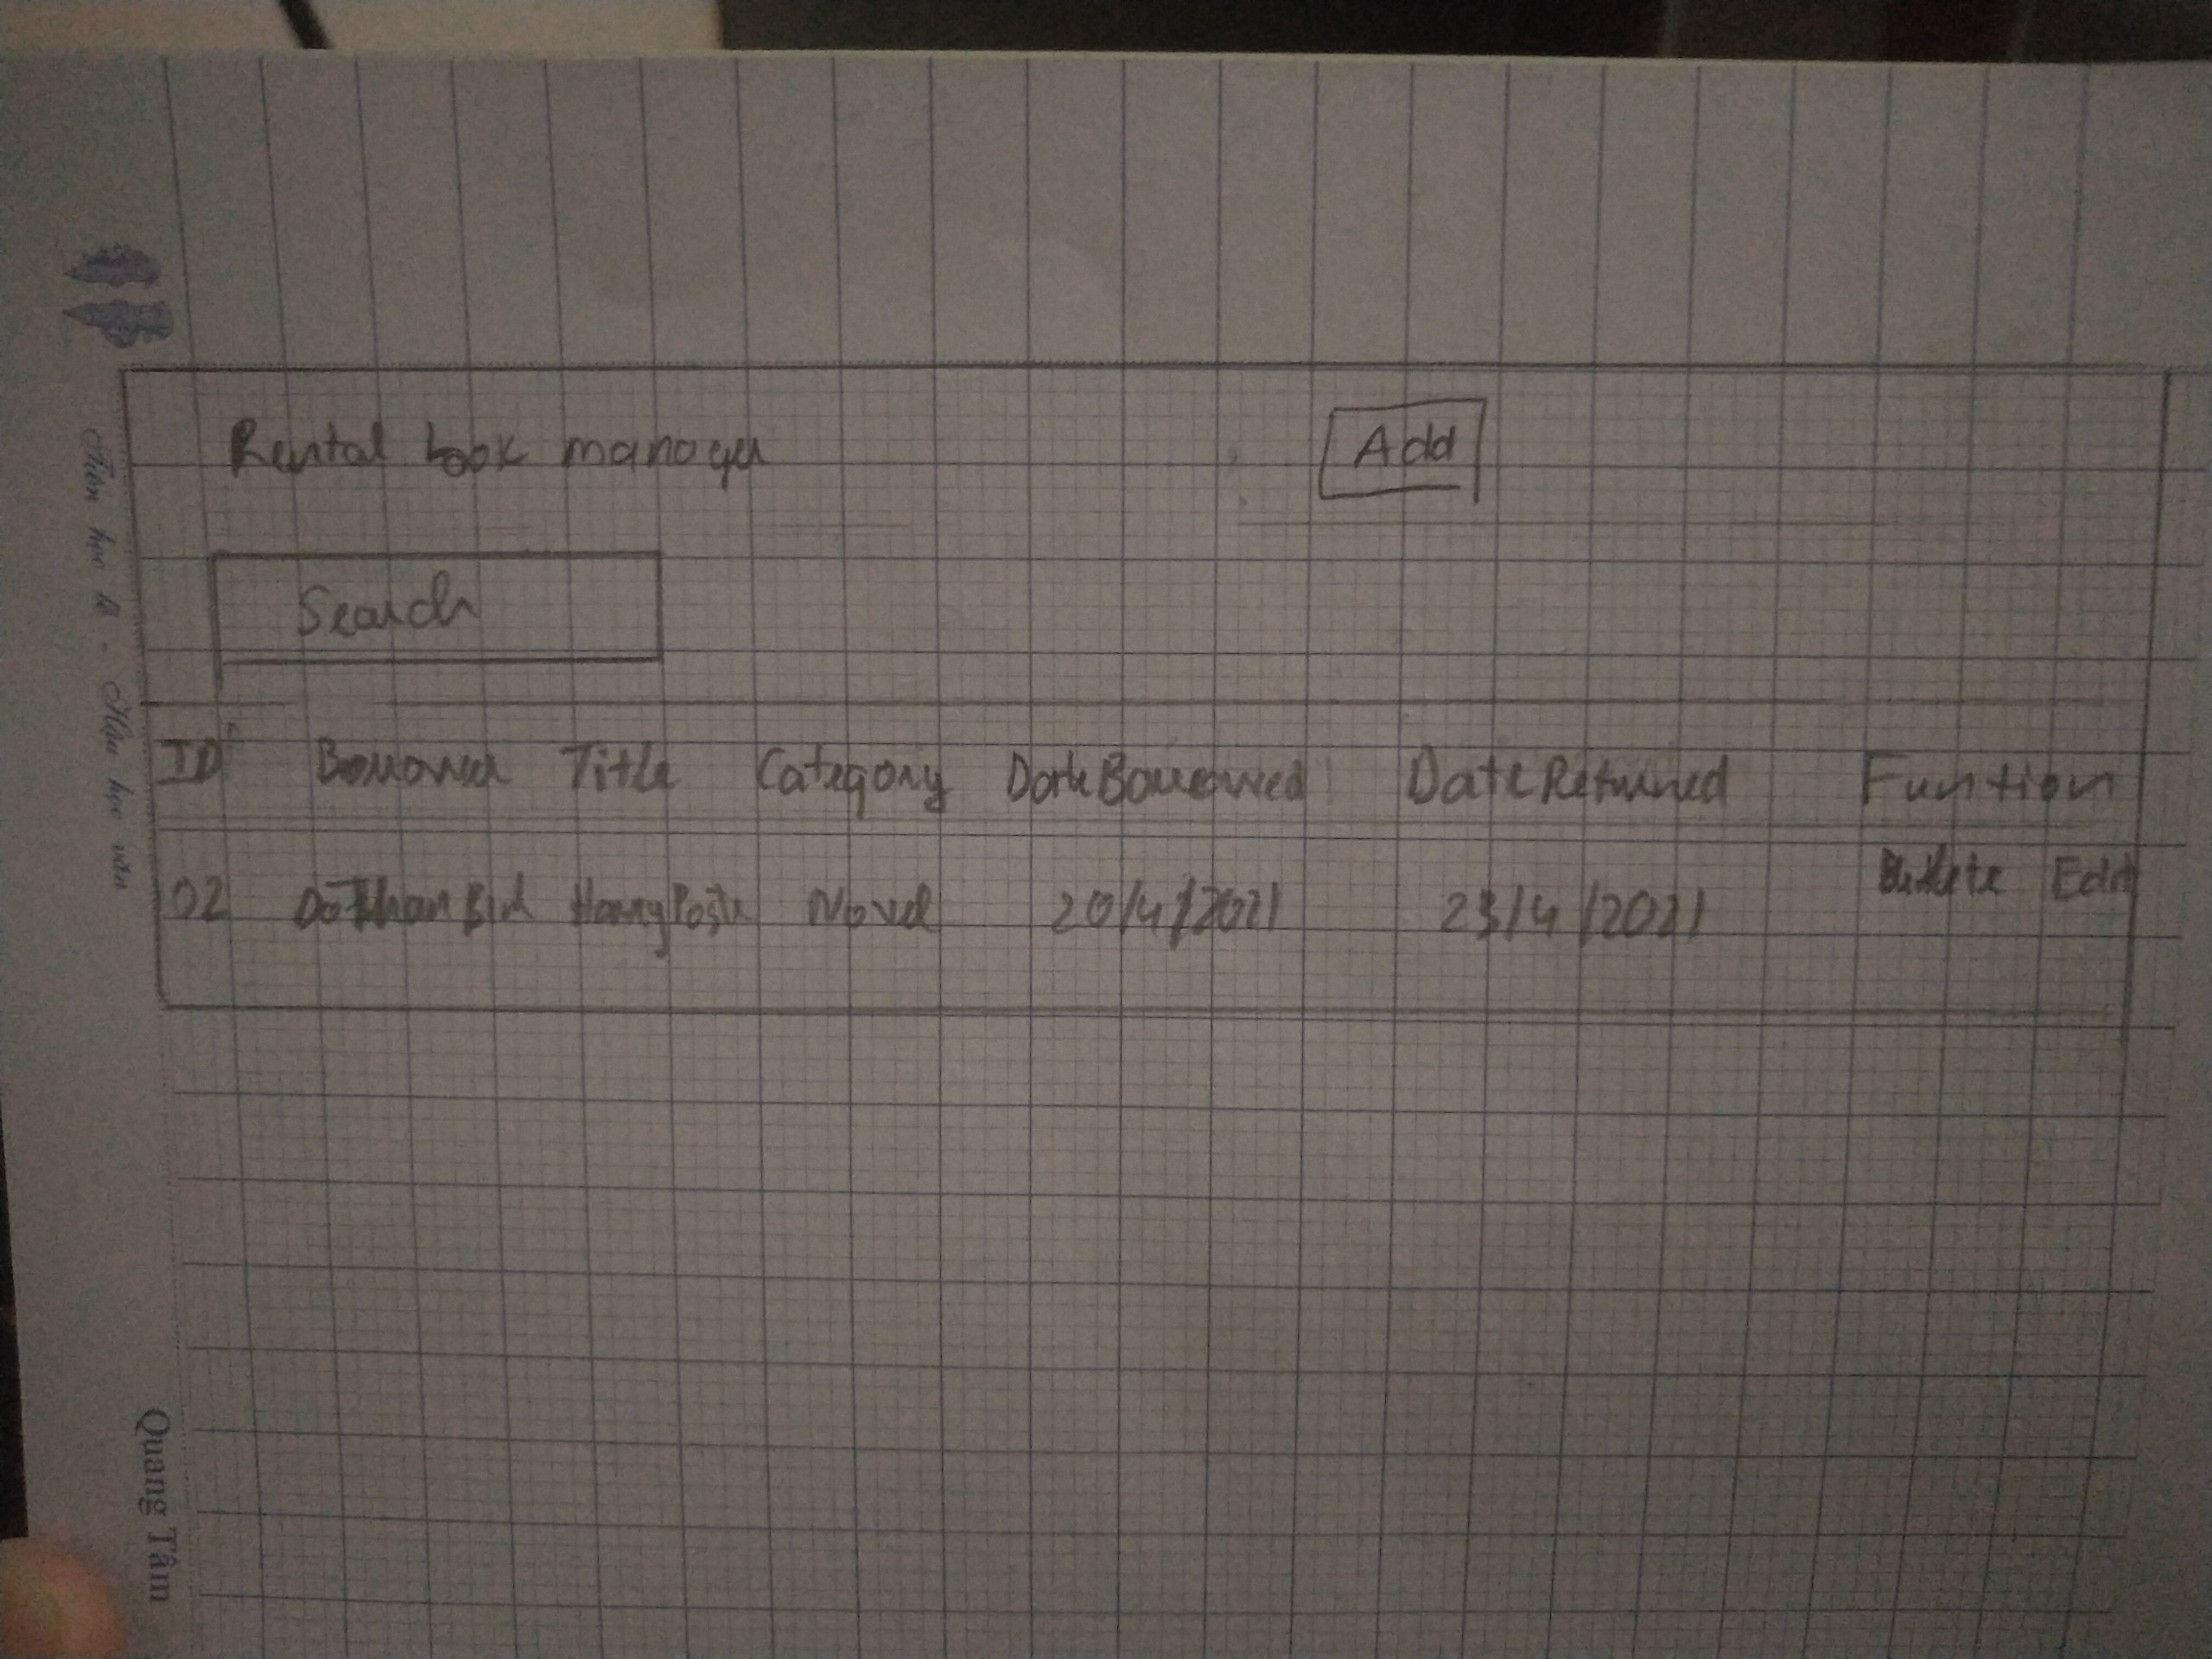 Rental book manager
Add
Search
ID Borrower Title Category DateBorrowed DateReturned Funtion
02 Novel 20/4/2021 23/4/2021 Edit
Tiên học lễ - Hậu học văn
Quang Tâm